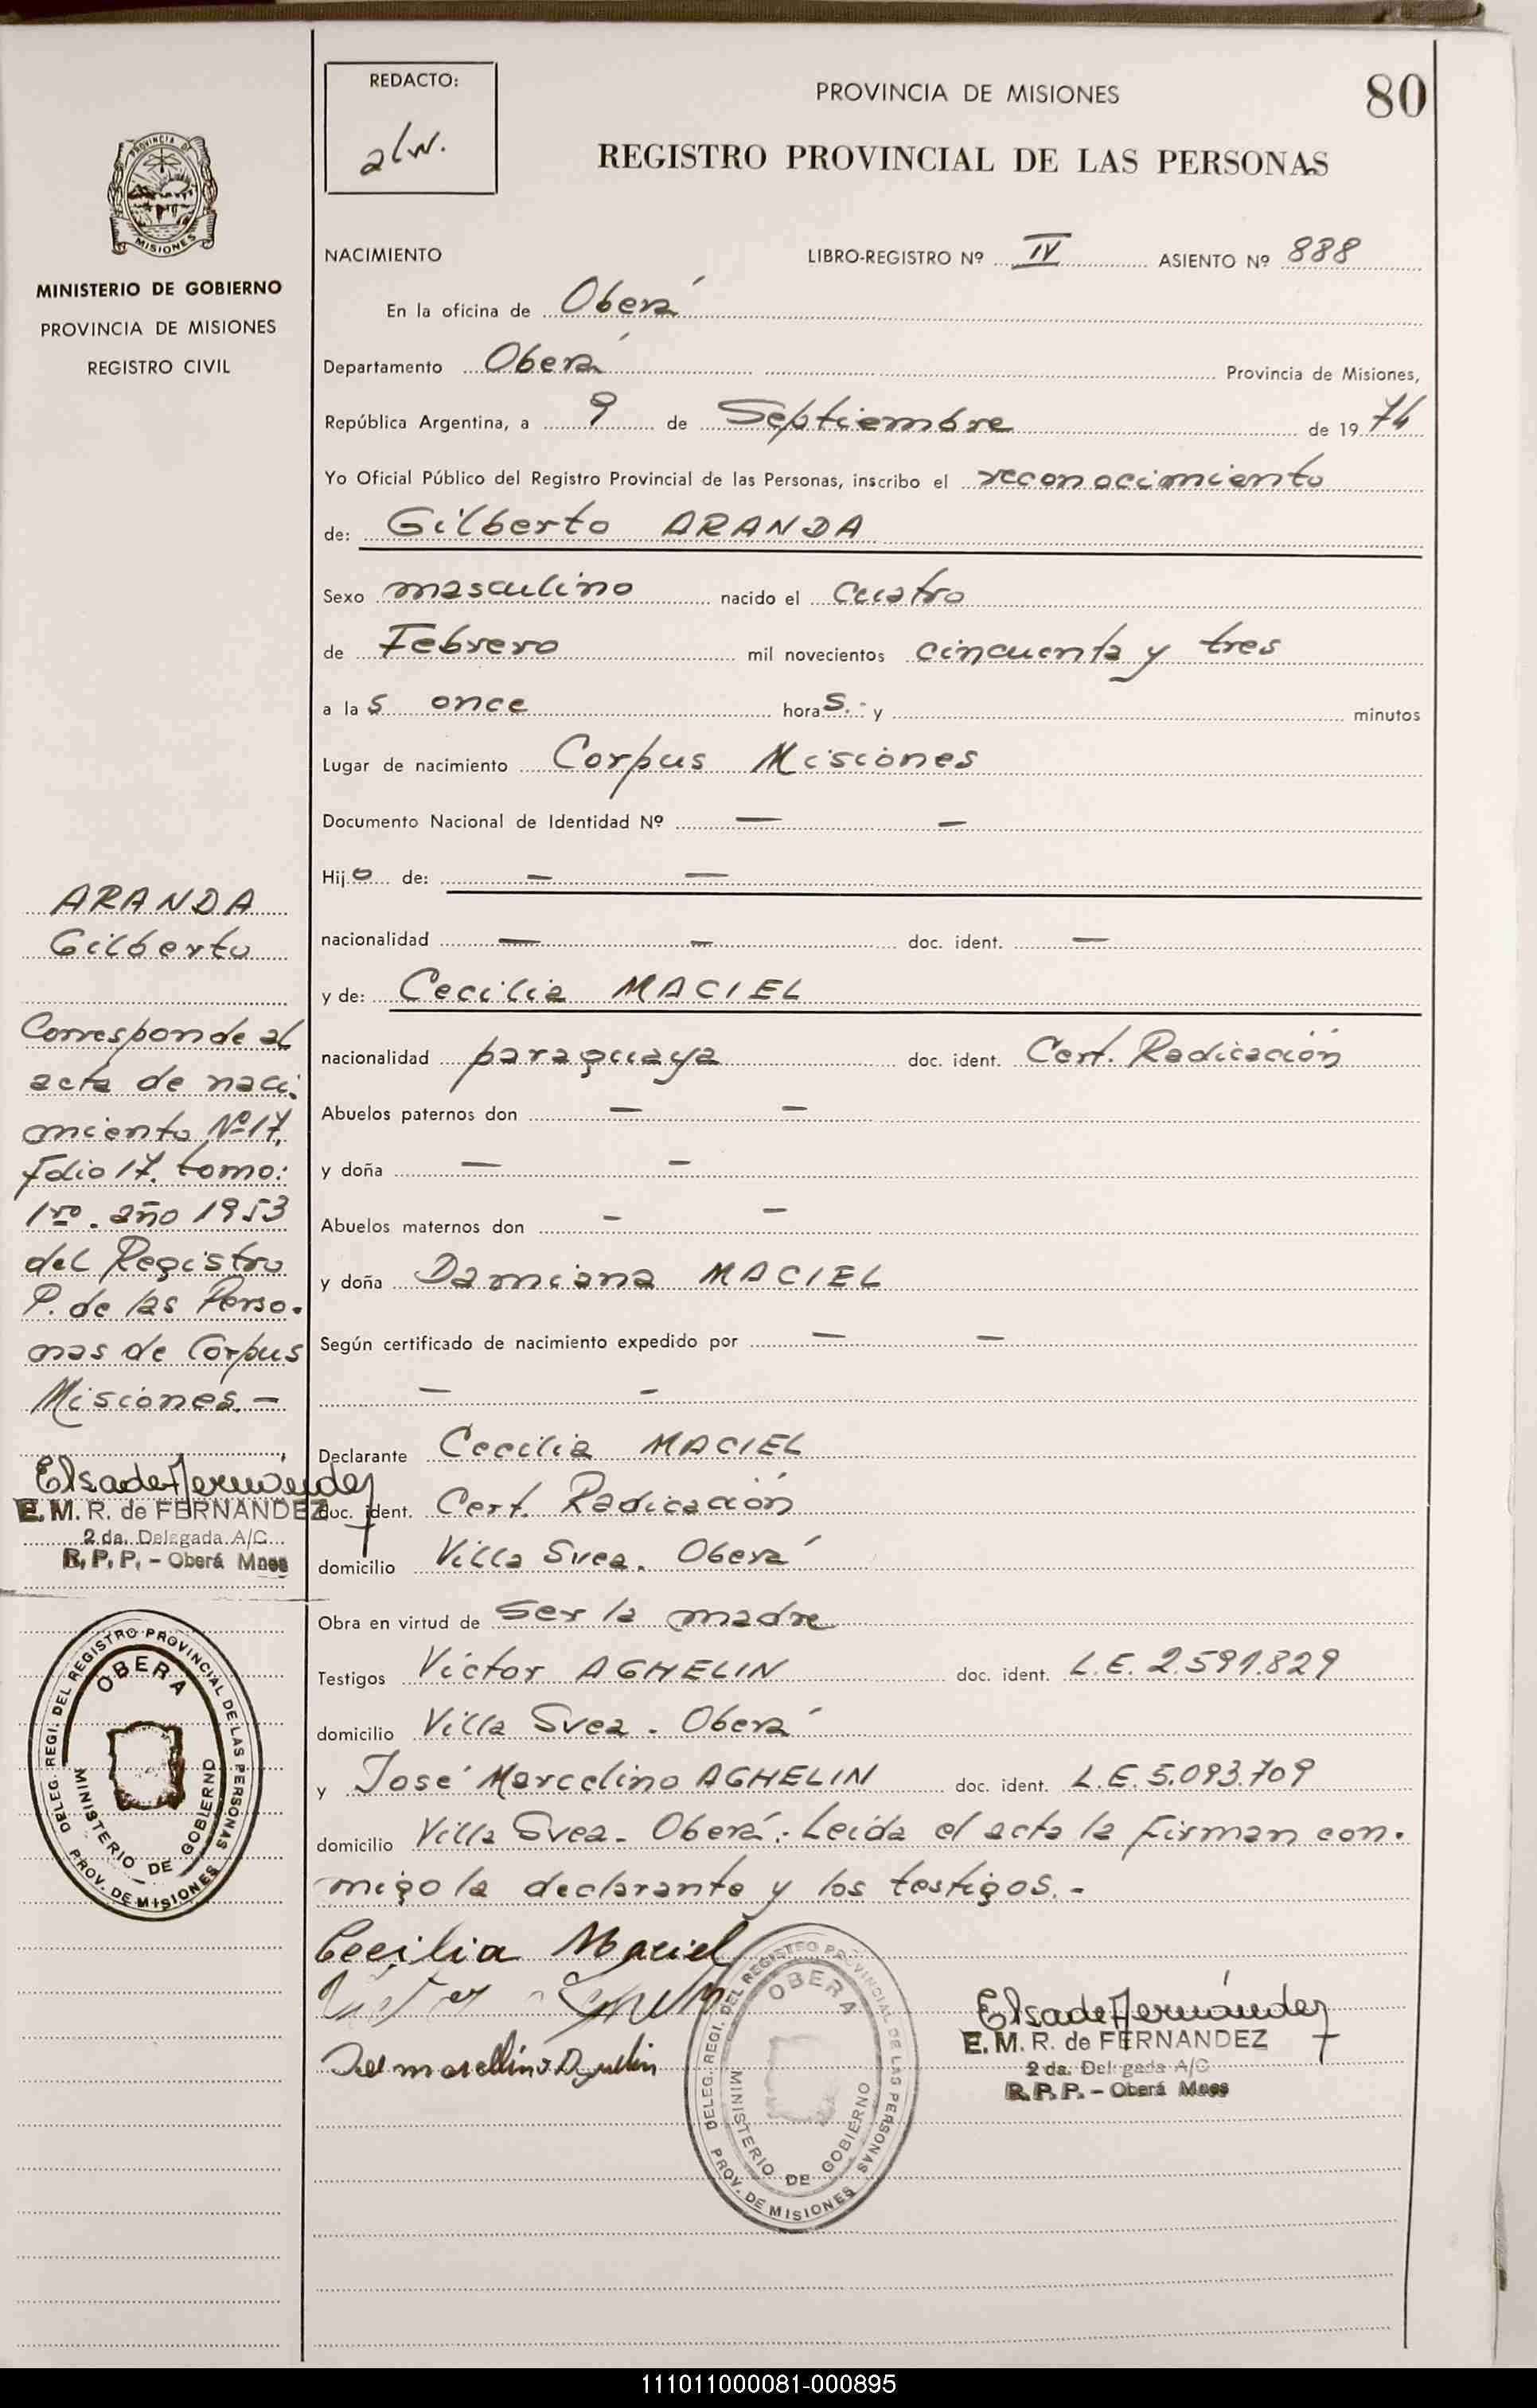 REDACTO:
alw.
PROVINCIA DE MISIONES
80
REGISTRO PROVINCIAL DE LAS PERSONAS
PROVINCIA DE
MISIONES
MINISTERIO DE GOBIERNO
PROVINCIA DE MISIONES
REGISTRO CIVIL
NACIMIENTO LIBRO-REGISTRO Nº IV ASIENTO Nº 888
En la oficina de Oberá
Departamento Oberá Provincia de Misiones,
República Argentina, a 9 de Septiembre de 1974
Yo Oficial Público del Registro Provincial de las Personas, inscribo el reconocimiento
de: Gilberto ARANDA
Sexo masculino nacido el cuatro
de Febrero mil novecientos cincuenta y tres
a las once horas.- y minutos
Lugar de nacimiento Corpus Misiones
Documento Nacional de Identidad Nº — —
Hijo de: — —
nacionalidad — — doc. ident. —
y de: Cecilia MACIEL
nacionalidad paraguaya doc. ident. Cert. Radicación
Abuelos paternos don — —
y doña — —
Abuelos maternos don — —
y doña Damiana MACIEL
Según certificado de nacimiento expedido por — —
— —
Declarante Cecilia MACIEL
doc. ident. Cert. Radicación
domicilio Villa Svea. Oberá
Obra en virtud de ser la madre
Testigos Victor AGHELIN doc. ident. L.E. 2.591.829
domicilio Villa Svea - Oberá
y José Marcelino AGHELIN doc. ident. L.E. 5.093.709
domicilio Villa Svea - Oberá. Leída el acta la firman con-
migo la declarante y los testigos.-
Cecilia Maciel
ARANDA
Gilberto
Corresponde al
acta de naci-
miento Nº 17,
folio 17. tomo:
1ro. año 1953
del Registro
P. de las Perso-
nas de Corpus
Misiones.-
Elsa de Fernández
E. M. R. de FERNANDEZ
2 da. Delegada A/C
R. P. P. - Oberá Mnes
DELEG. REGI. DEL REGISTRO PROVINCIAL DE LAS PERSONAS
OBERA
MINISTERIO DE GOBIERNO
PROV. DE MISIONES
DELEG. REGI. DEL REGISTRO PROVINCIAL DE LAS PERSONAS
OBERA
MINISTERIO DE GOBIERNO
PROV. DE MISIONES
Elsa de Fernández
E. M. R. de FERNANDEZ
2 da. Delegada A/C
R. P. P. - Oberá Mnes
111011000081-000895